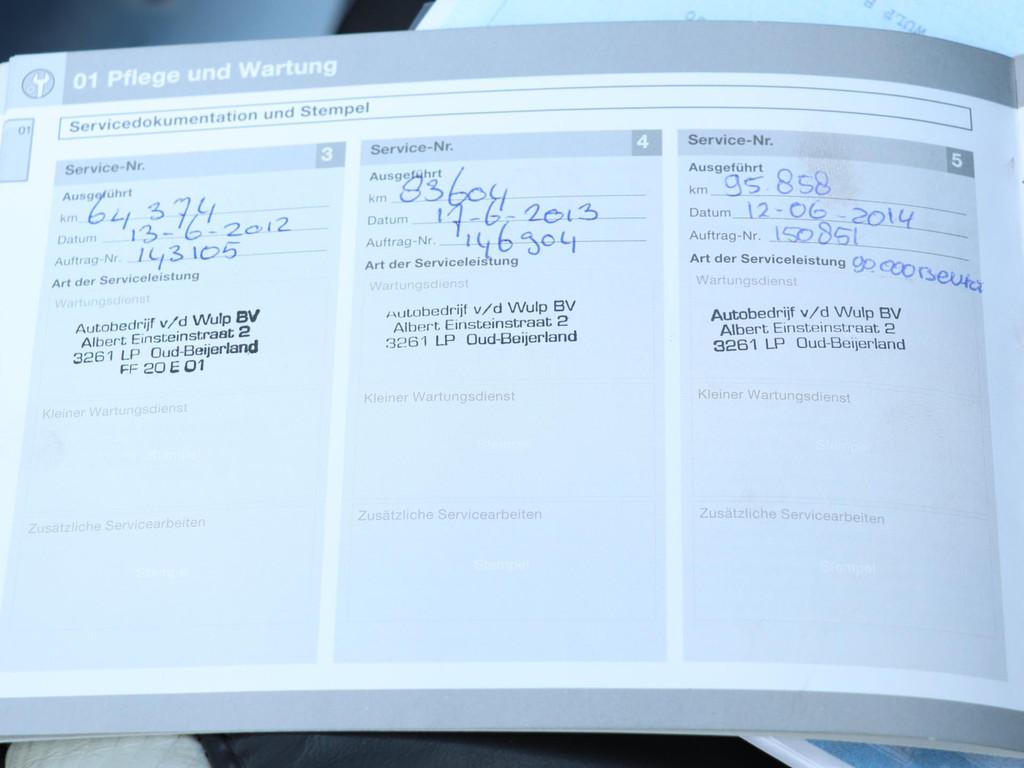 WULP B
01 Pflege und Wartung
01
Servicedokumentation und Stempel
Service-Nr. 3
Ausgeführt
km 64 374
Datum 13-6-2012
Auftrag-Nr. 143105
Art der Serviceleistung
Wartungsdienst
Autobedrijf v/d Wulp BV
Albert Einsteinstraat 2
3261 LP Oud-Beijerland
FF 20 E 01
Kleiner Wartungsdienst
Stempel
Zusätzliche Servicearbeiten
Stempel
Service-Nr. 4
Ausgeführt
km 83604
Datum 17-6-2013
Auftrag-Nr. 146904
Art der Serviceleistung
Wartungsdienst
Autobedrijf v/d Wulp BV
Albert Einsteinstraat 2
3261 LP Oud-Beijerland
Kleiner Wartungsdienst
Stempel
Zusätzliche Servicearbeiten
Stempel
Service-Nr. 5
Ausgeführt
km 95.858
Datum 12-06-2014
Auftrag-Nr. 150851
Art der Serviceleistung 90.000 Beurt
Wartungsdienst
Autobedrijf v/d Wulp BV
Albert Einsteinstraat 2
3261 LP Oud-Beijerland
Kleiner Wartungsdienst
Stempel
Zusätzliche Servicearbeiten
Stempel